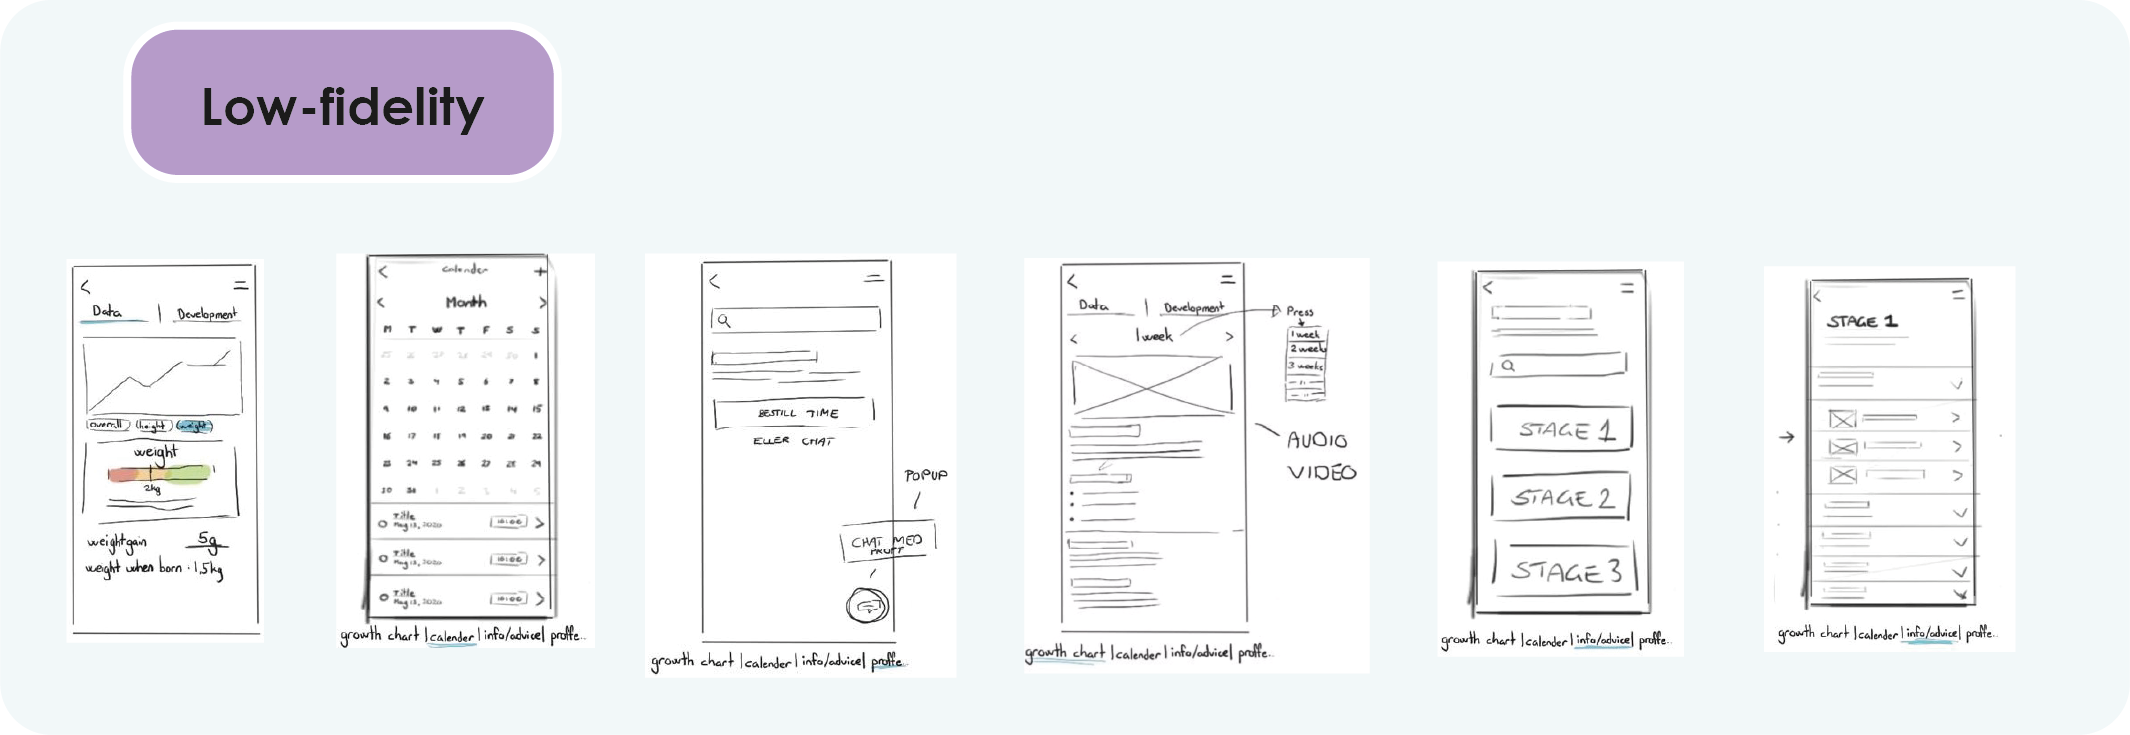 Low-fidelity
Data | Development
overall height weight
weight
2kg
weight gain 5g
weight when born · 1,5kg
< Calender +
< Month >
M T W T F S S
25 26 27 28 29 30 1
2 3 4 5 6 7 8
9 10 11 12 13 14 15
16 17 18 19 20 21 22
23 24 25 26 27 28 29
30 31 1 2 3 4 5
Title
May 13, 2020 10:00 >
Title
May 13, 2020 10:00 >
Title
May 13, 2020 10:00 >
growth chart | calender | info/advice | proffe..
BESTILL TIME
ELLER CHAT
POPUP
CHAT MED
growth chart | calender | info/advice | proffe..
Data | Development
< 1 week >
Press
1 week
2 week
3 weeks
AUDIO
VIDEO
growth chart | calender | info/advice | proffe..
STAGE 1
STAGE 2
STAGE 3
growth chart | calender | info/advice | proffe..
STAGE 1
growth chart | calender | info/advice | proffe..